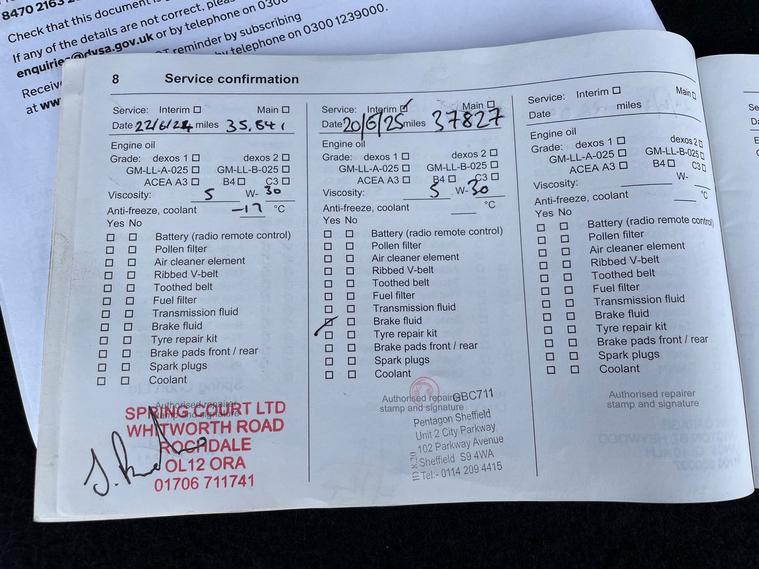 8470 2163 2
Check that this document is
If any of the details are not correct, pleas
enquiries@dvsa.gov.uk or by telephone on 0300
Receiv
T reminder by subscribing
at ww
by telephone on 0300 1239000.
8 Service confirmation
Service: Interim ☐ Main ☐
Date 22/6/24 miles 35,841
Engine oil
Grade: dexos 1 ☐ dexos 2 ☐
GM-LL-A-025 ☐ GM-LL-B-025 ☐
ACEA A3 ☐ B4 ☐ C3 ☐
Viscosity: 5 W- 30
Anti-freeze, coolant -17 °C
Yes No
☐ ☐ Battery (radio remote control)
☐ ☐ Pollen filter
☐ ☐ Air cleaner element
☐ ☐ Ribbed V-belt
☐ ☐ Toothed belt
☐ ☐ Fuel filter
☐ ☐ Transmission fluid
☐ ☐ Brake fluid
☐ ☐ Tyre repair kit
☐ ☐ Brake pads front / rear
☐ ☐ Spark plugs
☐ ☐ Coolant
Authorised repairer
stamp and signature
SPRING COURT LTD
WHITWORTH ROAD
ROCHDALE
OL12 ORA
01706 711741
Service: Interim ☑ Main ☐
Date 20/6/25 miles 37827
Engine oil
Grade: dexos 1 ☐ dexos 2 ☐
GM-LL-A-025 ☐ GM-LL-B-025 ☐
ACEA A3 ☐ B4 ☐ C3 ☐
Viscosity: 5 W- 30
Anti-freeze, coolant °C
Yes No
☐ ☐ Battery (radio remote control)
☐ ☐ Pollen filter
☐ ☐ Air cleaner element
☐ ☐ Ribbed V-belt
☐ ☐ Toothed belt
☐ ☐ Fuel filter
☐ ☐ Transmission fluid
☑ ☐ Brake fluid
☐ ☐ Tyre repair kit
☐ ☐ Brake pads front / rear
☐ ☐ Spark plugs
☐ ☐ Coolant
Authorised repairer
stamp and signature
GBC711
Pentagon Sheffield
Unit 2 City Parkway
102 Parkway Avenue
Sheffield S9 4WA
Tel:- 0114 209 4415
Service: Interim ☐ Main ☐
Date miles
Engine oil
Grade: dexos 1 ☐ dexos 2 ☐
GM-LL-A-025 ☐ GM-LL-B-025 ☐
ACEA A3 ☐ B4 ☐ C3 ☐
Viscosity: W-
Anti-freeze, coolant °C
Yes No
☐ ☐ Battery (radio remote control)
☐ ☐ Pollen filter
☐ ☐ Air cleaner element
☐ ☐ Ribbed V-belt
☐ ☐ Toothed belt
☐ ☐ Fuel filter
☐ ☐ Transmission fluid
☐ ☐ Brake fluid
☐ ☐ Tyre repair kit
☐ ☐ Brake pads front / rear
☐ ☐ Spark plugs
☐ ☐ Coolant
Authorised repairer
stamp and signature